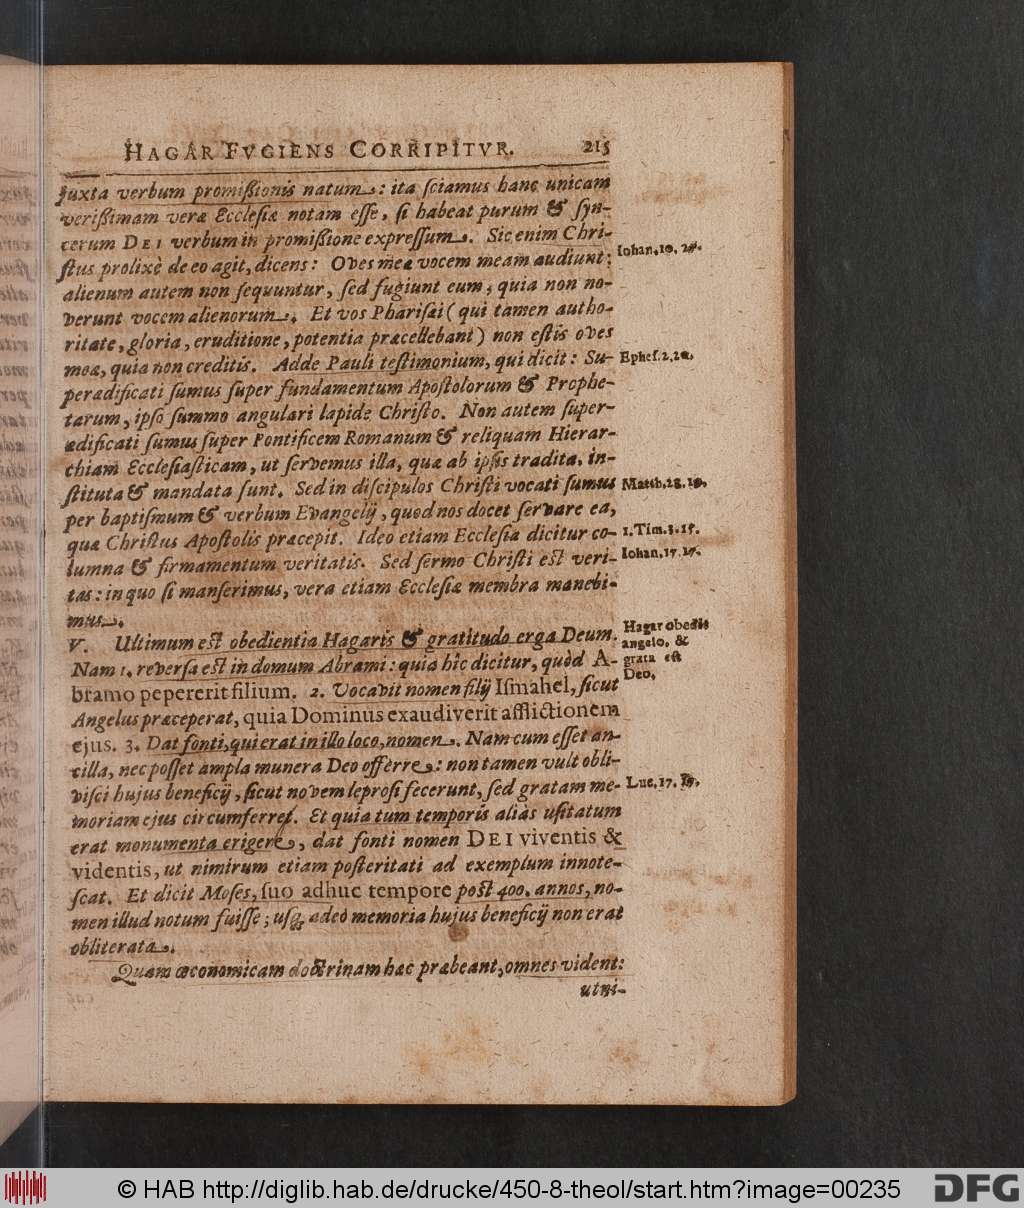 HAGAR FVGIENS CORRIPITVR. 215
juxta verbum promißionis natum: ita ſciamus hanc unicam
verißimam veræ Eccleſiæ notam eſſe, ſi habeat purum & ſyn-
cerum DEI verbum in promißione expreſſum. Sic enim Chri-
ſtus prolixè de eo agit, dicens: Oves meæ vocem meam audiunt:
Iohan. 10. 27.
alienum autem non ſequuntur, ſed fugiunt eum, quia non no-
verunt vocem alienorum. Et vos Phariſæi (qui tamen autho-
ritate, gloria, eruditione, potentia præcellebant) non eſtis oves
meæ, quia non creditis. Adde Pauli teſtimonium, qui dicit: Su-
Epheſ. 2. 20.
perædificati ſumus ſuper fundamentum Apoſtolorum & Prophe-
tarum, ipſo ſummo angulari lapide Chriſto. Non autem ſuper-
ædificati ſumus ſuper Pontificem Romanum & reliquam Hierar-
chiam Eccleſiaſticam, ut ſervemus illa, quæ ab ipſis tradita, in-
ſtituta & mandata ſunt. Sed in diſcipulos Chriſti vocati ſumus
Matth. 28. 19.
per baptiſmum & verbum Evangelij, quod nos docet ſervare ea,
quæ Chriſtus Apoſtolis præcepit. Ideo etiam Eccleſia dicitur co-
1. Tim. 3. 15.
lumna & firmamentum veritatis. Sed ſermo Chriſti eſt veri-
Iohan. 17. 17.
tas: in quo ſi manſerimus, vera etiam Eccleſiæ membra manebi-
mus.
V. Ultimum eſt obedientia Hagaris & gratitudo erga Deum.
Hagar obedit
angelo, &
grata eſt
Deo.
Nam 1. reverſa eſt in domum Abrami: quia hîc dicitur, quòd A-
bramo pepererit filium. 2. Vocavit nomen filij Iſmahel, ſicut
Angelus præceperat, quia Dominus exaudiverit afflictionem
ejus. 3. Dat fonti, qui erat in illo loco, nomen. Nam cum eſſet an-
cilla, nec poſſet ampla munera Deo offerre: non tamen vult obli-
viſci hujus beneficij, ſicut novem leproſi fecerunt, ſed gratam me-
Luc. 17. 17.
moriam ejus circumferret. Et quia tum temporis aliàs uſitatum
erat monumenta erigere, dat fonti nomen DEI viventis &
videntis, ut nimirum etiam poſteritati ad exemplum innote-
ſcat. Et dicit Moſes, ſuo adhuc tempore poſt 400. annos, no-
men illud notum fuiſſe; uſq; adeò memoria hujus beneficij non erat
obliterata.
Quam œconomicam doctrinam hæc præbeant, omnes vident:
ut ni-
© HAB http://diglib.hab.de/drucke/450-8-theol/start.htm?image=00235
DFG